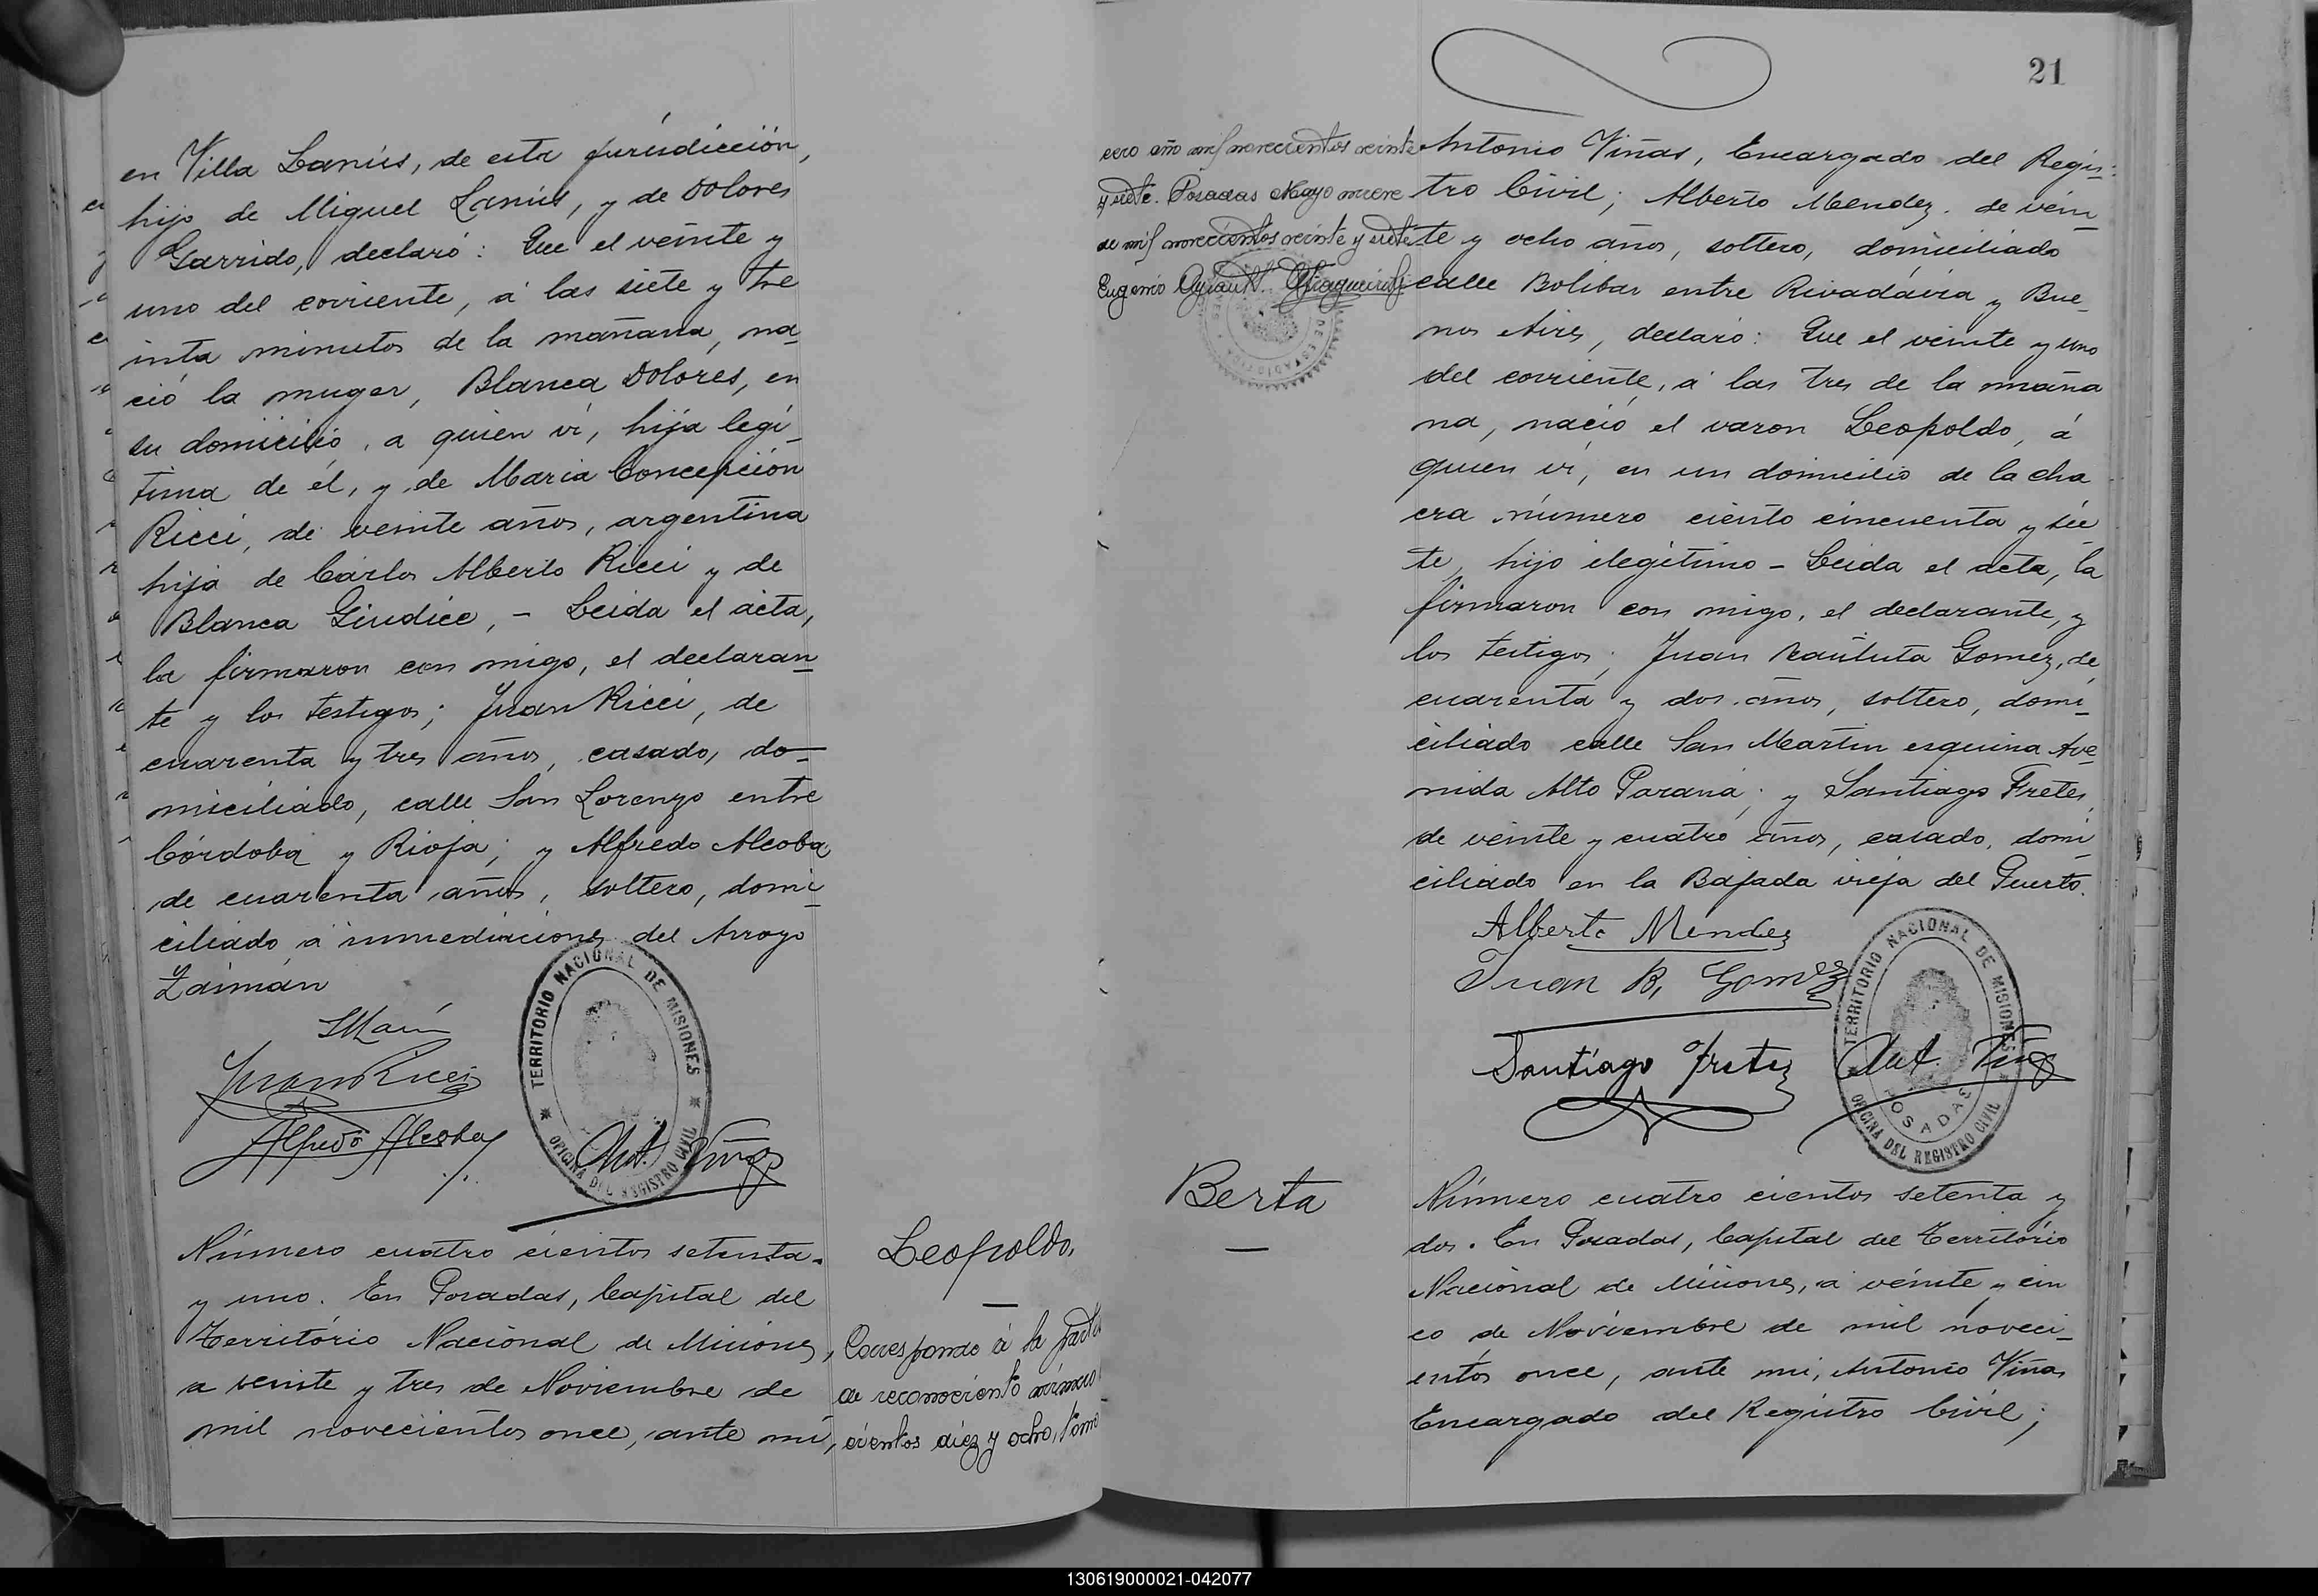 en Villa Lanús, de esta jurisdicción,
hijo de Miguel Lanús, y de Dolores
Garrido, declaró: Que el veinte y
uno del corriente, á las siete y tre
inta minutos de la mañana, na
ció la muger, Blanca Dolores, en
su domicilio, a quien vi, hija legí
tima de él, y de Maria Concepción
Ricci, de veinte años, argentina
hija de Carlos Alberto Ricci y de
Blanca Giudice, - Leida el acta,
la firmaron con migo, el declaran
te y los testigos; Juan Ricci, de
cuarenta y tres años, casado, do-
miciliado, calle San Lorenzo entre
Córdoba y Rioja; y Alfredo Alcoba
de cuarenta años, soltero, domi
ciliado á inmediaciones del Arroyo
Zaimán
Juan Ricci
Alfredo Alcoba
Ant. Viñas
TERRITORIO NACIONAL DE MISIONES
OFICINA DEL REGISTRO CIVIL
Número cuatro cientos setenta
y uno. En Posadas, Capital del
Territorio Nacional de Misiones,
a veinte y tres de Noviembre de
mil novecientos once, ante mi,
Leopoldo.
Corresponde á la partida
de reconociento número
cientos diez y ocho, tomo
21
cero año mil novecientos veinte
y siete. Posadas Mayo nueve
de mil novecientos veinte y siete
Eugenio
Antonio Viñas, Encargado del Regis-
tro Civil; Alberto Mendez, de vein
te y ocho años, soltero, domiciliado
calle Bolibar entre Rivadávia y Bue
nos Aires, declaró: Que el veinte y uno
del corriente, á las tres de la maña
na, nació el varon Leopoldo, á
quien vi, en un domicilio de la cha
cra número ciento cincuenta y sie
te, hijo ilegitimo - Leida el acta, la
firmaron con migo, el declarante, y
los testigos; Juan Bautista Gomez, de
cuarenta y dos años, soltero, domi
ciliado calle San Martin esquina Ave
nida Alto Paraná; y Santiago Fretes,
de veinte y cuatro años, casado, domi
ciliado en la Bajada vieja del Puerto.
Alberto Mendez
Juan B. Gomez
Santiago Fretez
Ant. Viñas
TERRITORIO NACIONAL DE MISIONES
POSADAS
OFICINA DEL REGISTRO CIVIL
Berta
Número cuatro cientos setenta y
dos. En Posadas, Capital del Territorio
Nacional de Misiones, á veinte y cin
co de Noviembre de mil noveci-
entos once, ante mi, Antonio Viñas
Encargado del Registro Civil;
130619000021-042077